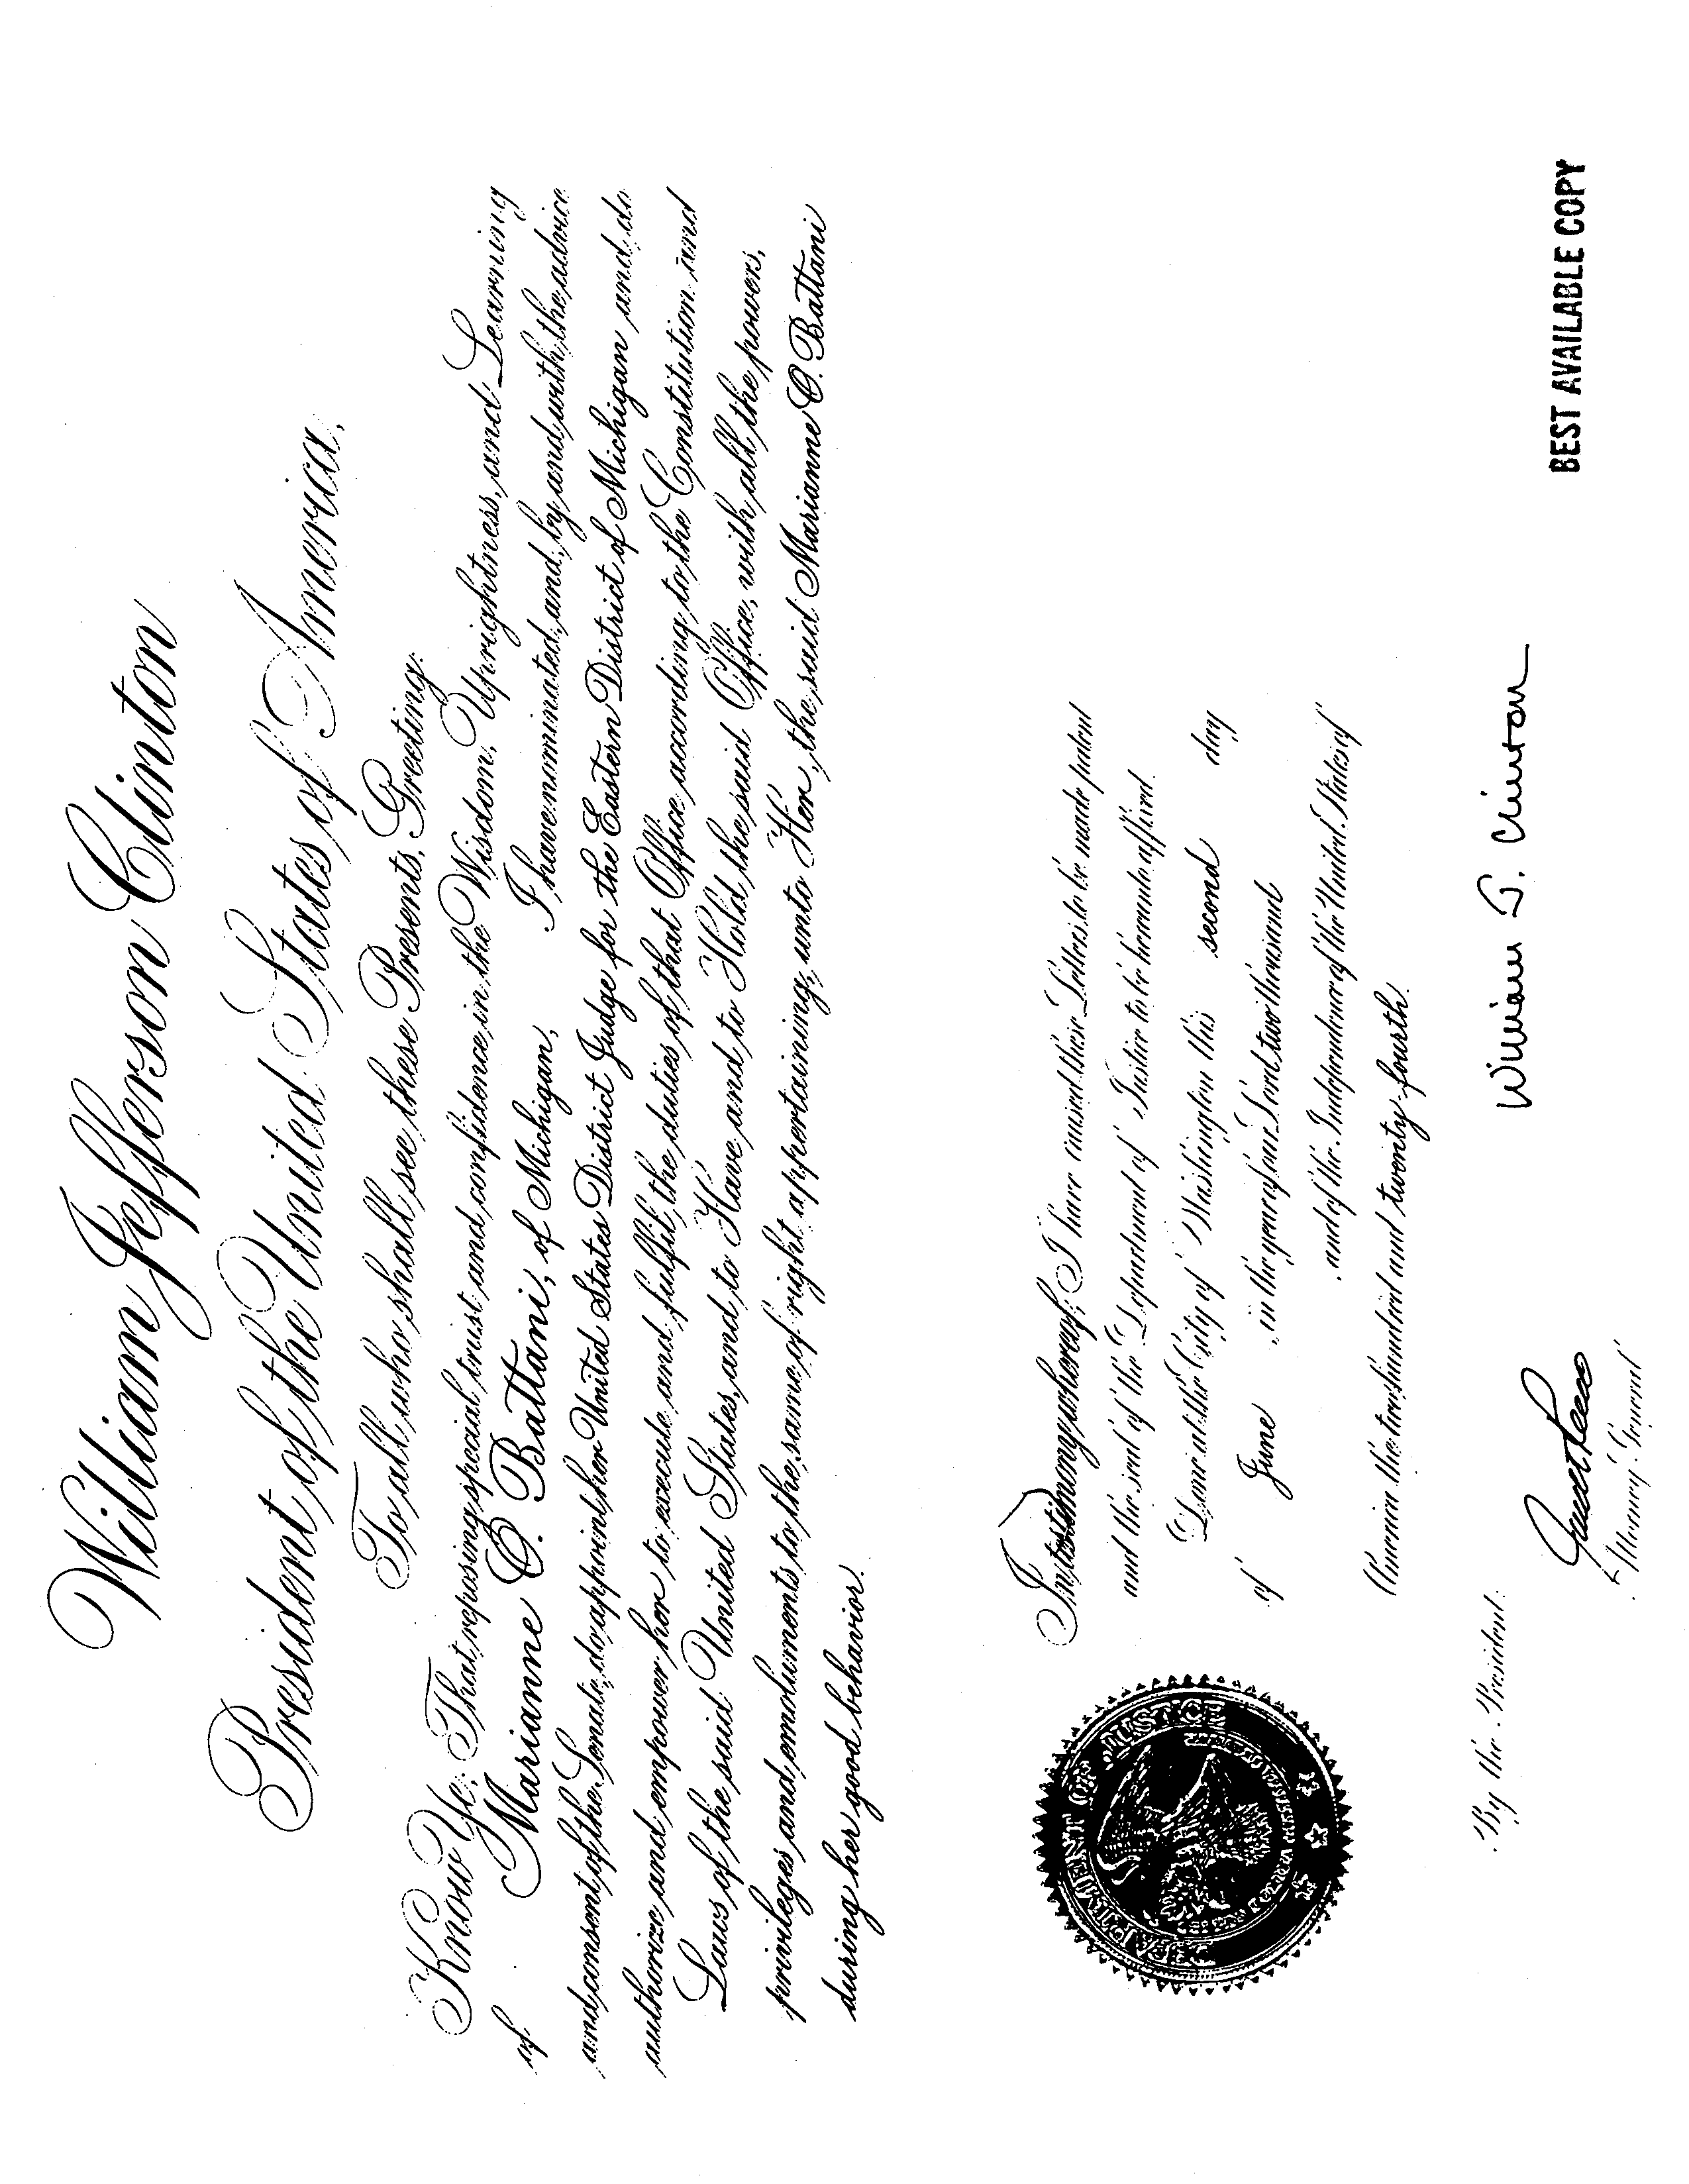 William Jefferson Clinton
President of the United States of America,
To all who shall see these Presents, Greeting:
Know Ye: That reposing special trust and confidence in the Wisdom, Uprightness, and Learning
of Marianne O. Battani, of Michigan, I have nominated, and, by and with the advice
and consent of the Senate, do appoint her United States District Judge for the Eastern District of Michigan and do
authorize and empower her to execute and fulfil the duties of that Office according to the Constitution and
Laws of the said United States, and to Have and to Hold the said Office, with all the powers,
privileges and emoluments to the same of right appertaining, unto Her, the said Marianne O. Battani
during her good behavior.
In testimony whereof, I have caused these Letters to be made patent
and the seal of the Department of Justice to be hereunto affixed.
Done at the City of Washington this second day
of June , in the year of our Lord two thousand
, and of the Independence of the United States of
America the two hundred and twenty-fourth.
DEPARTMENT OF JUSTICE
By the President:
William J. Clinton
Janet Reno
Attorney General
BEST AVAILABLE COPY